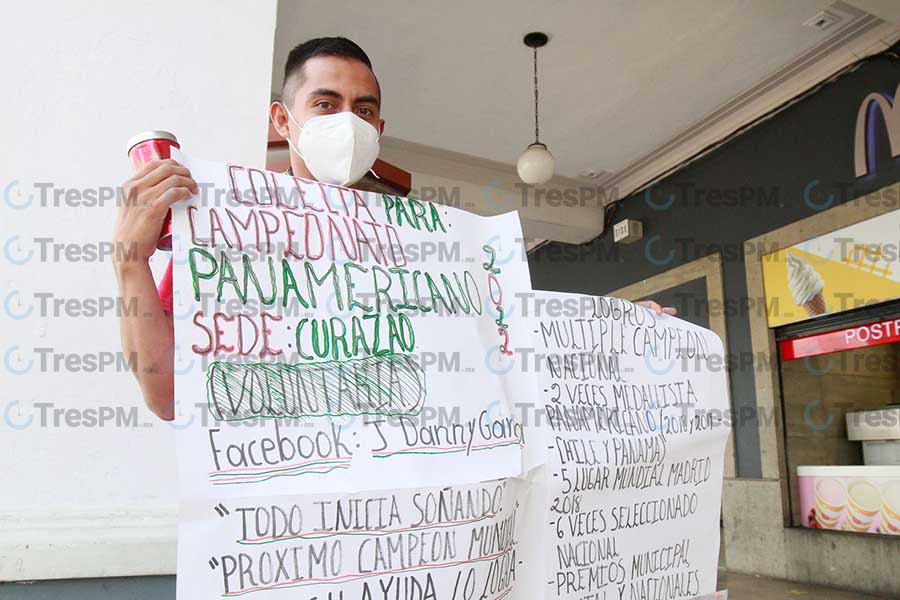 COLECTA PARA:
CAMPEONATO
PANAMERICANO
2022
SEDE: CURAZAO
VOLUNTARIA
Facebook: J Danny Garc
"TODO INICIA SOÑANDO"
"PROXIMO CAMPEON MUNDIAL
AYUDA LO LOGRA-
LOGROS
MULTIPLE CAMPEON
NACIONAL
-2 VECES MEDALISTA
PANAMERICANO/2018 y
-CHILE Y PANAMA
-5 LUGAR MUNDIAL MADRID
2018
-6 VECES SELECCIONADO
NACIONAL
-PREMIOS MUNICIPAL
Y NACIONALES
POSTR
TresPM